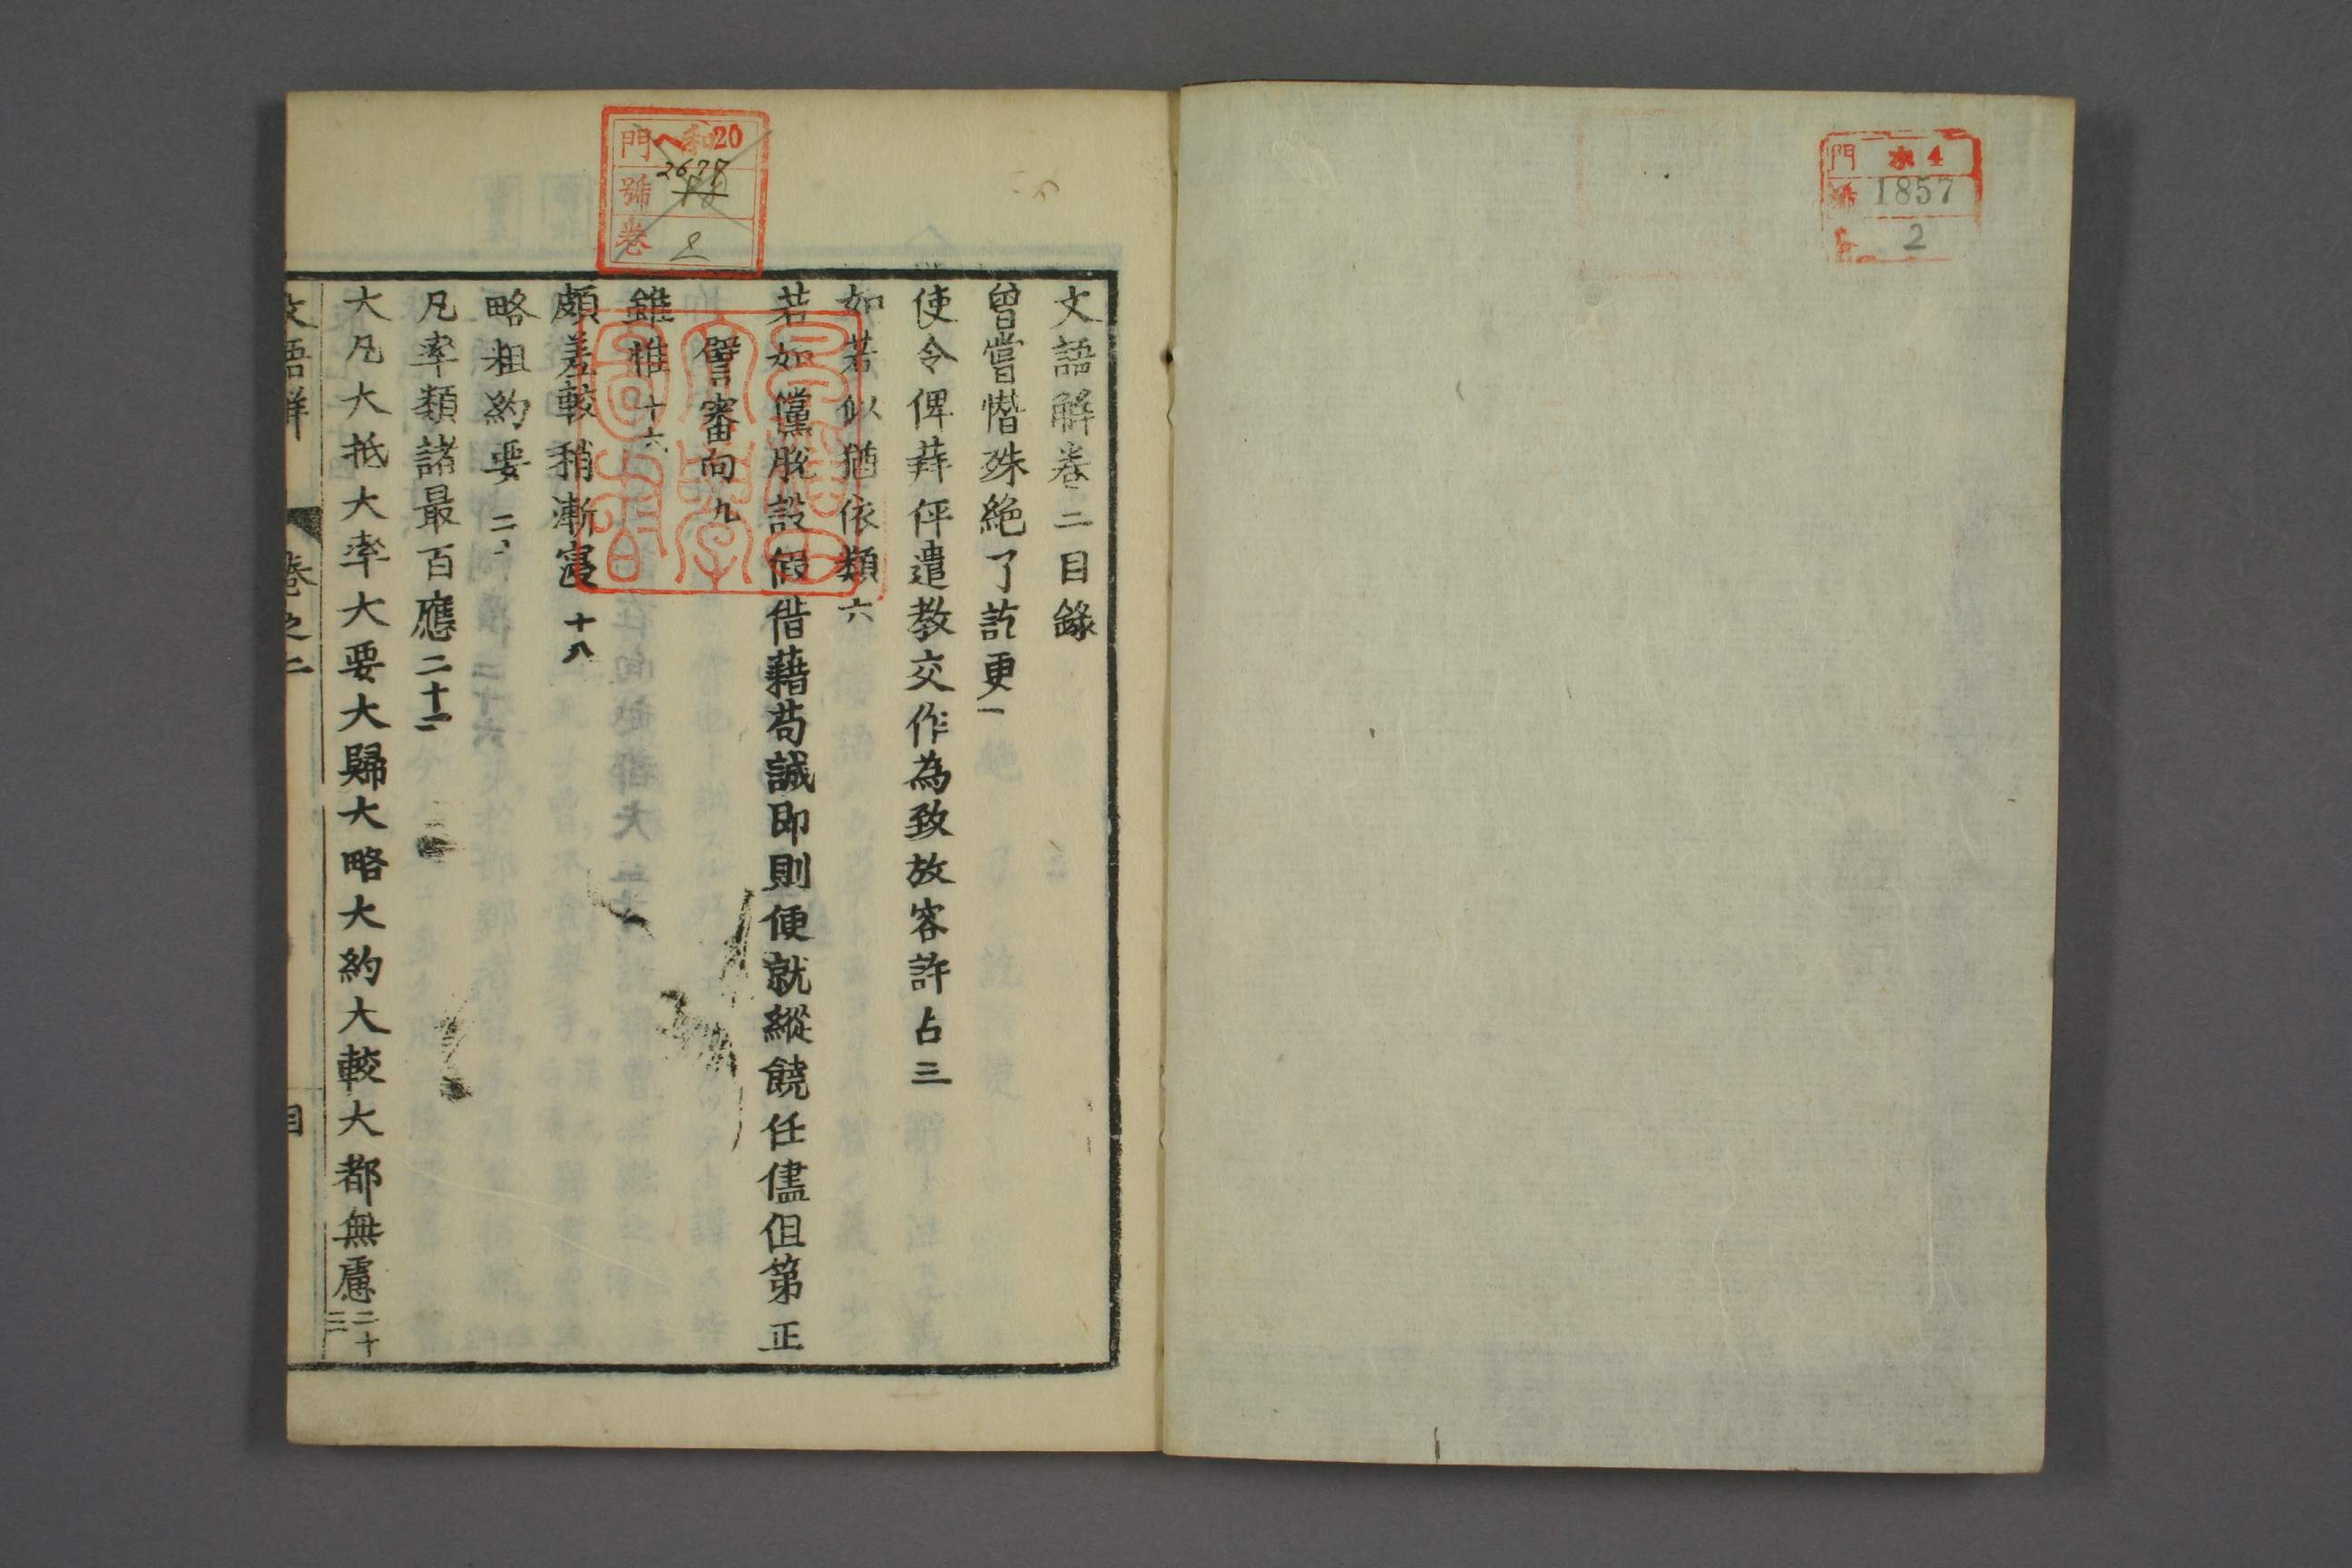 門 ホ4
號 1857
卷 2
門 ヘ 和 20
號 2678
卷 2
文語解卷二目錄
曾嘗憯殊絕了訖更一
使令俾拜伻遣教交作為致放容許占三
如若似猶依類六
若如儻脫設假借藉苟誠即則便就縱饒任儘但第正
譬審向九
雖惟十六
頗差較稍漸寖十八
略粗約要二十
凡率類諸最百應二十二
大凡大抵大率大要大歸大略大約大較大都無慮二十三
文語解 卷之二 目
早稻田大學圖書